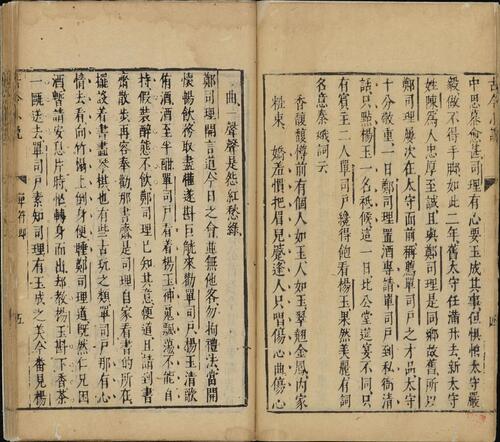 中思慕愈甚司理有心要玉成其事但惧怕太守嚴
毅做不得手脚如此二年舊太守任滿升去新太守
姓陳爲人忠厚至誠且與鄭司理是同鄉故舊所以
鄭司理屢次在太守面前稱薦單司戶之才品太守
十分敬重一日鄭司理置酒專請單司戶到私衙清
話只點楊玉一名祗候這一日比公堂筵宴不同只
有賓主二人單司戶纔得飽看楊玉果然美麗有詞
名意秦娥詞云
香馥馥樽前有個人如玉人如玉翠翹金鳳内家
粧束 嬌羞慣把眉兒蹙逢人只唱傷心曲傷心
曲聲聲是怨紅愁綠
鄭司理開言道今日之會並無他客勿拘禮法當開
懷暢飲務取盡懽遂斟巨觥來勸單司戶楊玉清歌
侑酒酒至半酣單司戶看着楊玉神魂飄蕩不能自
持假裝醉態不飲鄭司理已知其意便道且請到書
齋散步再容奉勸那書齋是司理自家看書的所在
擺設着書畫琴棋也有些古玩之類單司戶那有心
情去看向竹榻上倒身便睡鄭司理道既然仁兄困
酒暫請安息片時忙轉身而出却教楊玉斟下香茶
一甌送去單司戶素知司理有玉成之美今番見楊